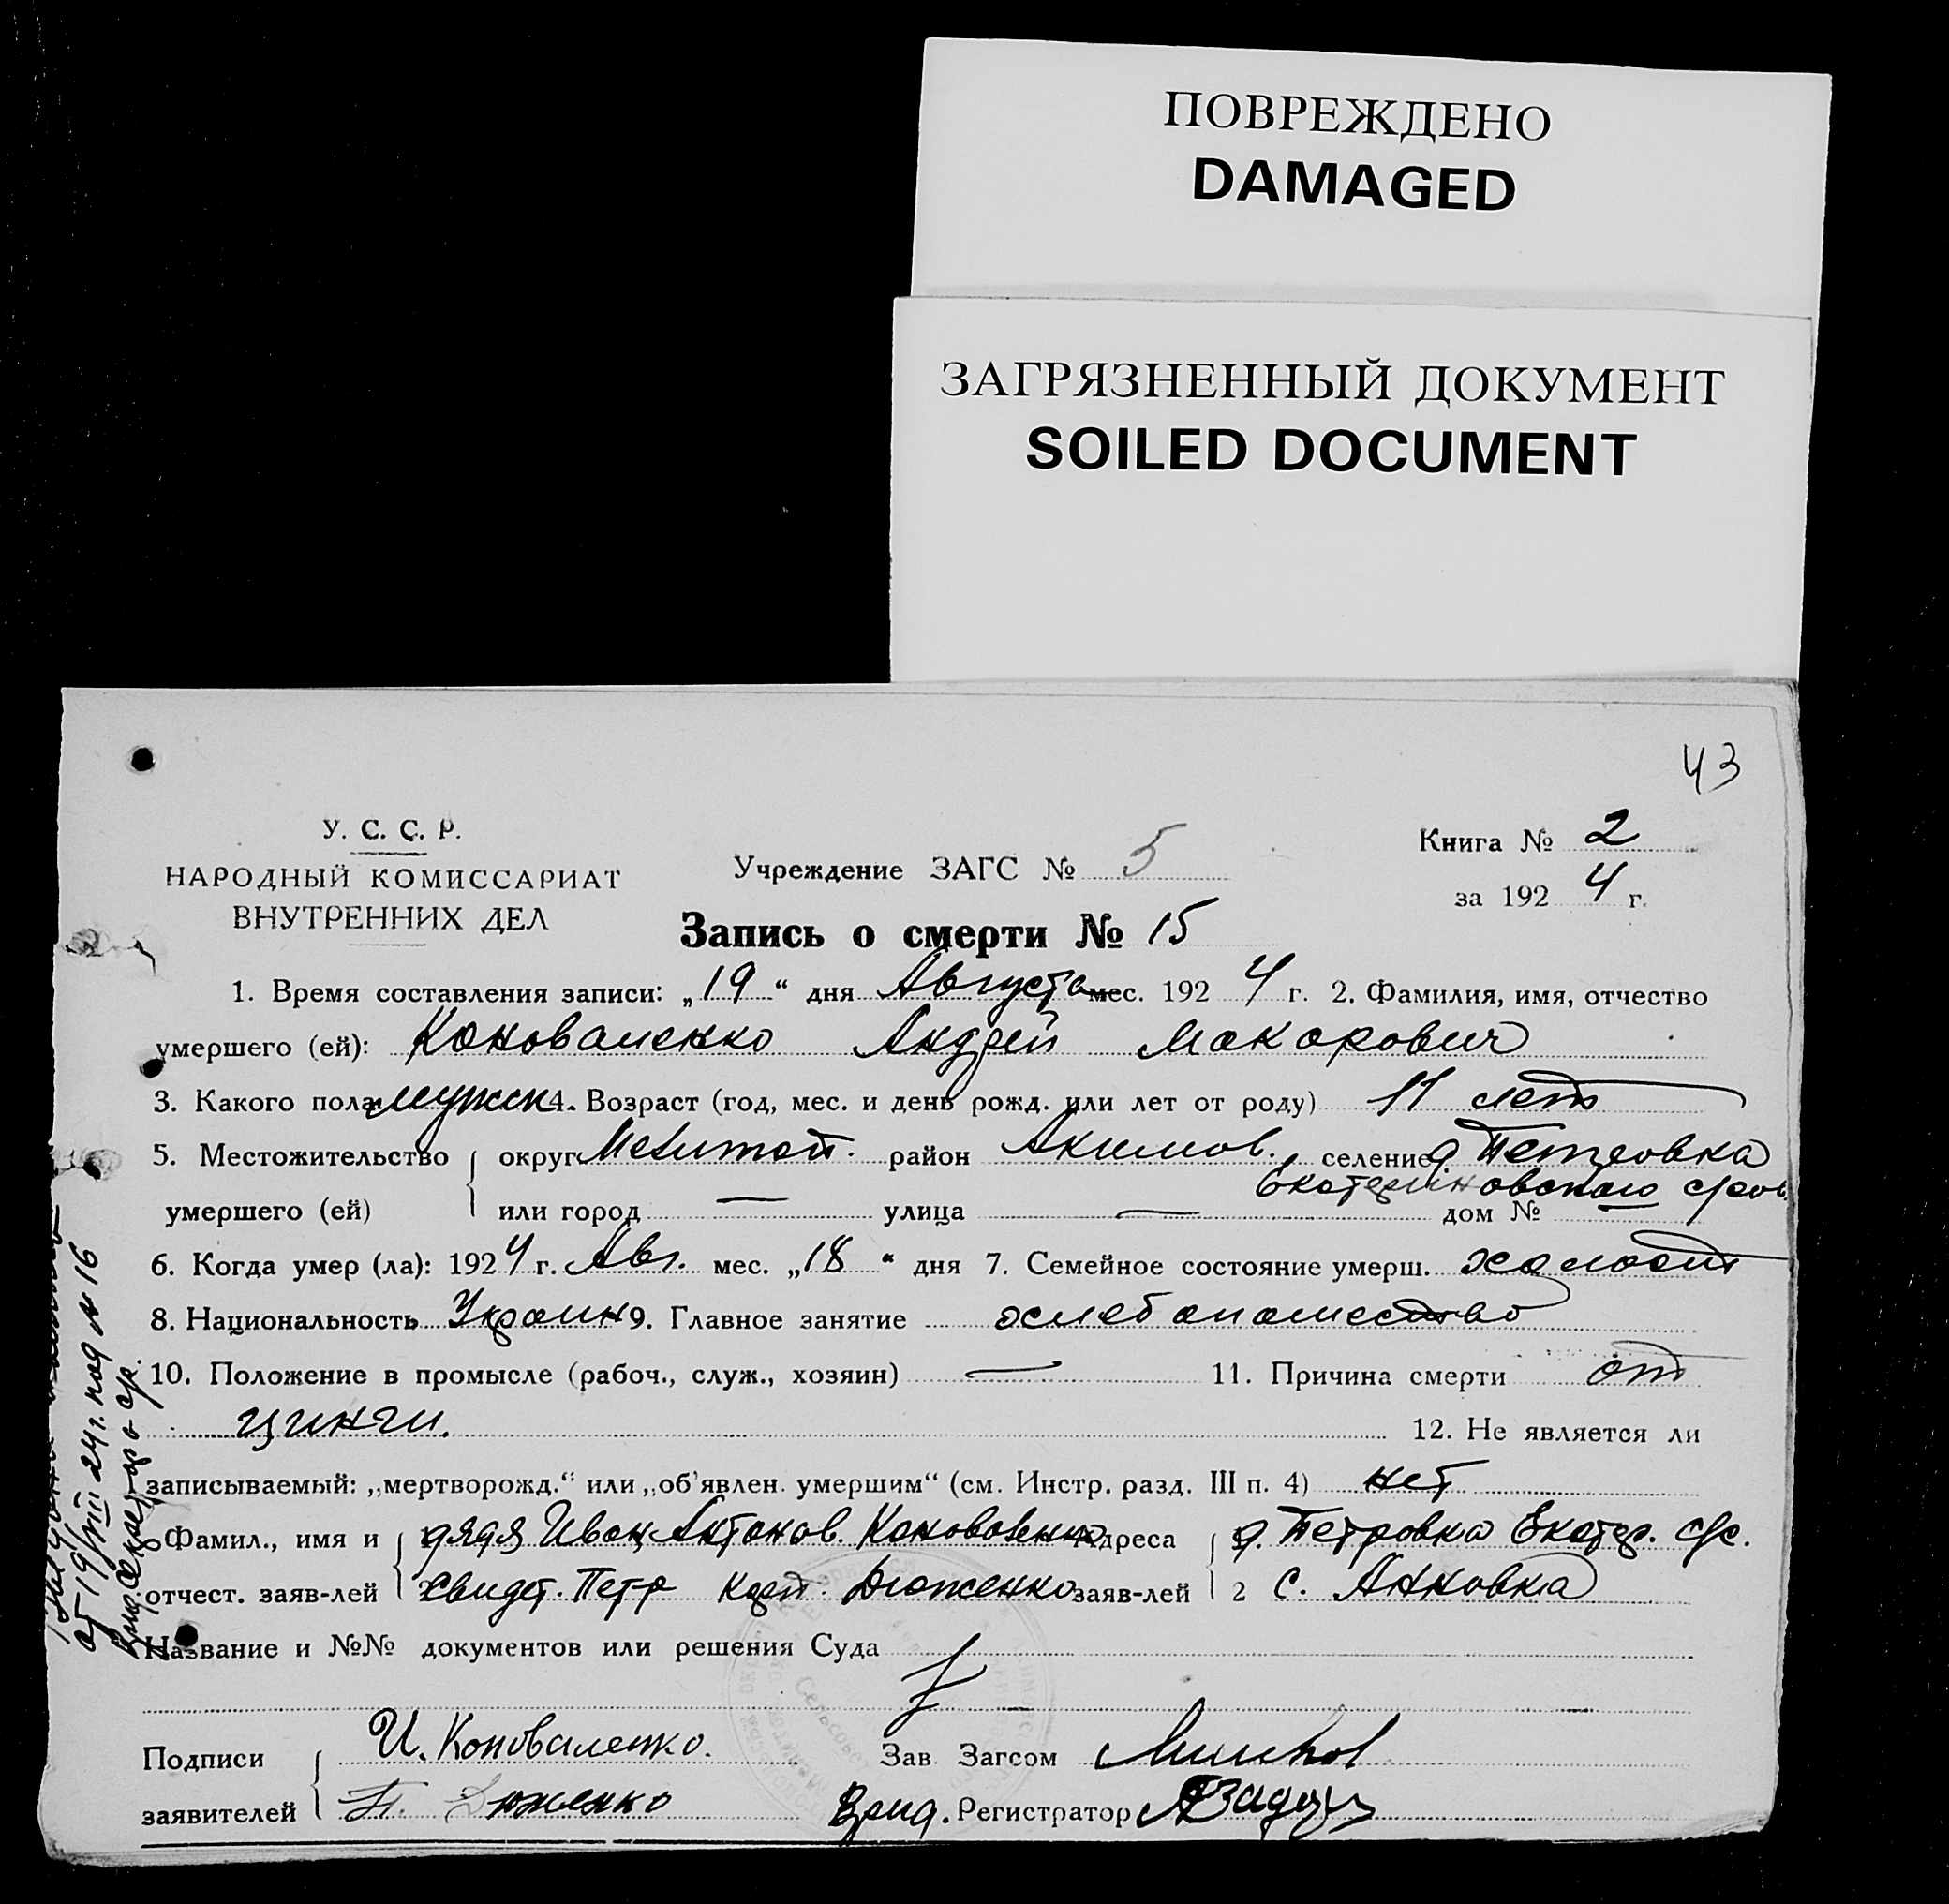 ПОВРЕЖДЕНО
DAMAGED
ЗАГРЯЗНЕННЫЙ ДОКУМЕНТ
SOILED DOCUMENT
43
У. С. С. Р.
НАРОДНЫЙ КОМИССАРИАТ
ВНУТРЕННИХ ДЕЛ
Учреждение ЗАГС № 5
Книга № 2
за 192 4 г.
Запись о смерти № 15
1. Время составления записи: „19“ дня Августа мес. 192 4 г. 2. Фамилия, имя, отчество
умершего (ей): Коноваленко Андрей Макарович
3. Какого пола мужск 4. Возраст (год, мес. и день рожд. или лет от роду) 11 лет
5. Местожительство округ Мелитоп. район Акимов. селение д. Петровка
Екатериновского с/сов.
умершего (ей) или город — улица — дом № —
6. Когда умер (ла): 192 4 г. Авг. мес. „18“ дня 7. Семейное состояние умерш. холост
8. Национальность Украин 9. Главное занятие хлебопашество
10. Положение в промысле (рабоч., служ., хозяин) — 11. Причина смерти от
цинги. 12. Не является ли
записываемый: „мертворожд.“ или „об'явлен. умершим“ (см. Инстр. разд. III п. 4) нет
Фамил., имя и дядя Иван Антонов. Коноваленко Адреса д. Петровка Екатер. с/с.
отчест. заяв-лей свидет. Петр Дюженко заяв-лей 2 с. Анновка
Название и №№ документов или решения Суда
Подписи И. Коноваленко. Зав. Загсом
заявителей П. Дюженко Врид. Регистратор
от 19/VIII 24 г. под № 16